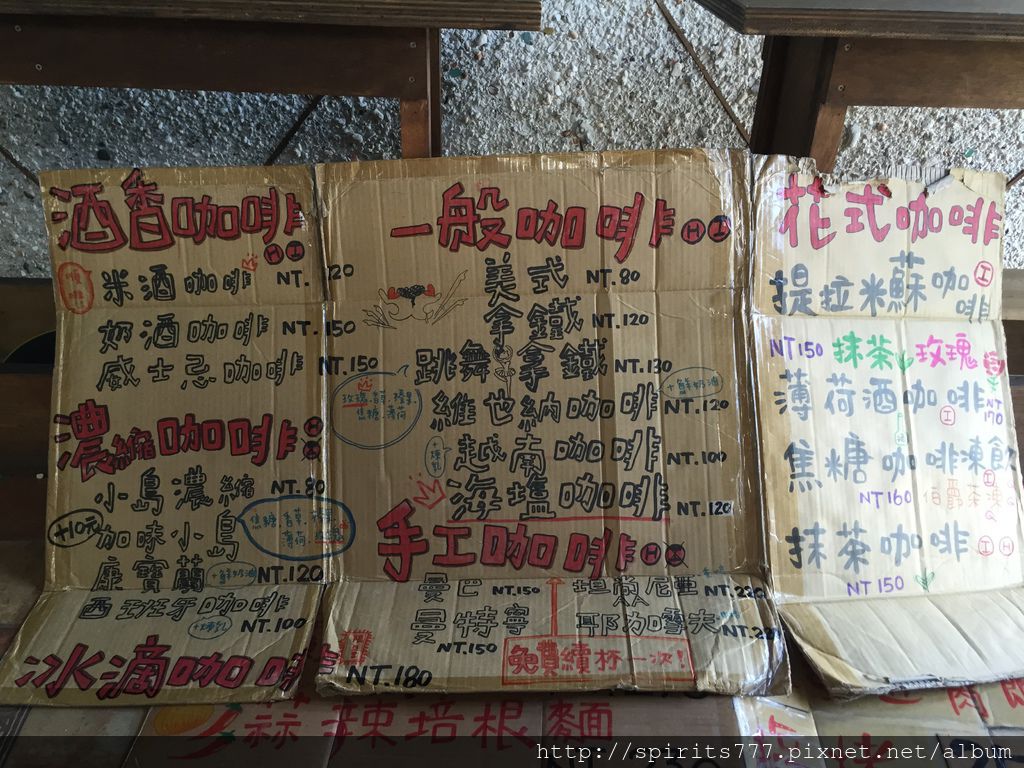 酒香咖啡 H I
米酒咖啡 NT.120
奶酒咖啡 NT.150
威士忌咖啡 NT.150
濃縮咖啡
小島濃縮 NT.80
+10元 加味小島
焦糖.香草.榛果.
薄荷.
康寶蘭 +鮮奶油 NT.120
西班牙咖啡
+煉乳 NT.100
冰滴咖啡 NT.180
一般咖啡 H I
美式 NT.80
拿鐵 NT.120
跳舞拿鐵 NT.130
玫瑰.香草.榛果.
焦糖.薄荷
維也納咖啡 +鮮奶油 NT.120
+煉乳 越南咖啡 NT.100
海塩咖啡 NT.120
手工咖啡 H
曼巴 NT.150
曼特寧
NT.150
坦尚尼亞 AA NT.220
耶加雪夫
免費續杯一次!
花式咖啡
提拉米蘇咖啡 I
NT150 抹茶 玫瑰
薄荷酒咖啡 I NT170
焦糖咖啡凍飲 I
NT160
抹茶咖啡 I H
NT150
蒜辣培根麵
http://spirits777.pixnet.net/album